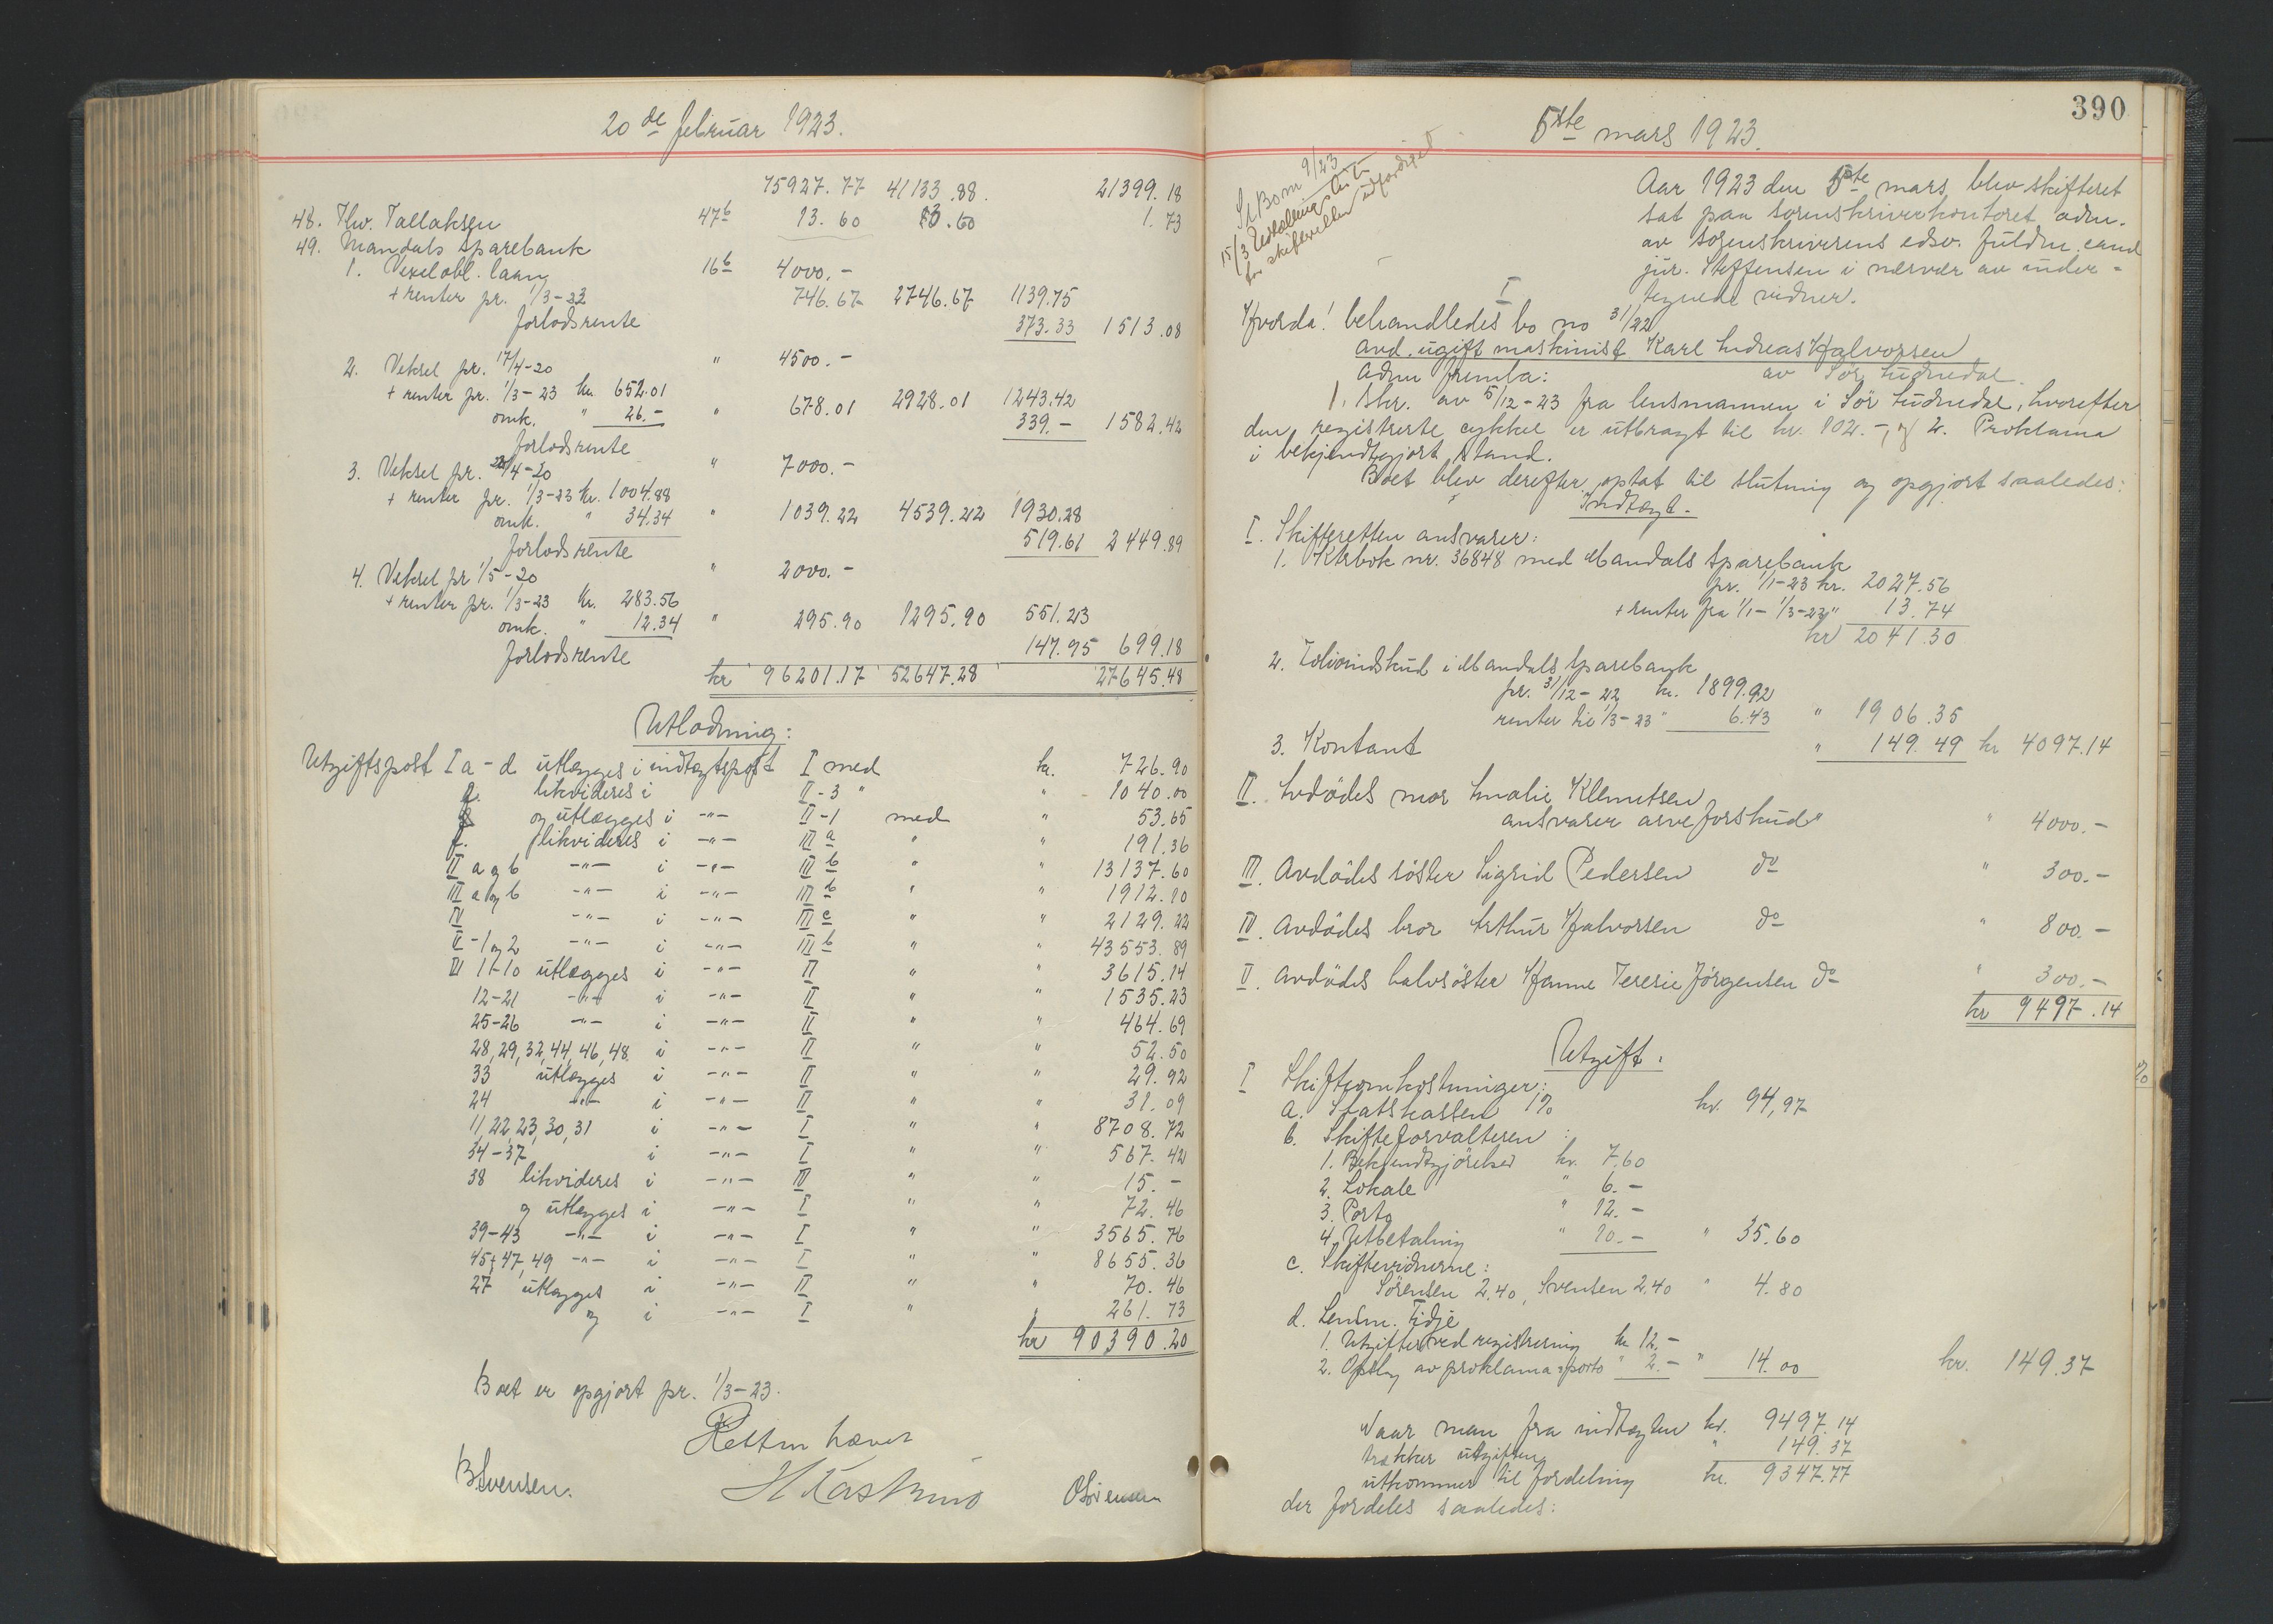 20de februar 1923.
75927.77 41133.88. 21399.18
48. Thv. Tallaksen 47b 13.60 13.60 1.73
49. Mandals Sparebank
1. Vexelobl. laan 16b 4000.-
+ renter pr. 1/3-23 746.67 2746.67 1139.75
forlodsrente 373.33 1513.08
2. Veksel pr. 17/4-20 " 4500.-
+ renter pr. 1/3-23 kr. 652.01
omk. " 26.- " 678.01 2928.01 1243.42
forlodsrente 339.- 1582.42
3. Veksel pr. 28/4-20 " 7000.-
+ renter pr. 1/3-23 kr. 1004.88
omk. " 34.34 " 1039.22 4539.22 1930.28
forlodsrente 519.61 2449.89
4. Veksel pr 1/5-20 " 2000.-
+ renter pr. 1/3-23 kr. 283.56
omk. " 12.34 " 295.90 1295.90 551.23
forlodsrente 147.95 699.18
kr 96201.17 52647.28 27645.48
Utlodning:
Utgiftspost I a-d utlægges i indtægtspost I med kr. 726.90
likvideres i II-3 " " 1040.00
og utlægges i -"- II-1 med " 53.65
f. likvideres i -"- III a " " 191.36
II a og b -"- i -"- III b " " 13137.60
III a og b -"- i -"- III b " " 1912.10
IV -"- i -"- III c " " 2129.22
V-1 og 2 -"- i -"- III b " " 43553.89
VI 1-10 utlægges i -"- II " " 3615.14
12-21 -"- i -"- II " " 1535.23
25-26 -"- i -"- II " " 464.69
28, 29, 32, 44, 46, 48. i -"- II " " 52.50
33 utlægges i -"- II " " 29.92
24 -"- i -"- II " " 31.09
11, 22, 23, 30, 31 i -"- I " " 8708.72
34-37 i -"- I " " 567.42
38 likvideres i -"- IV " " 15.-
og utlægges i -"- I " " 72.46
39-43 -"- i -"- I " " 3565.76
45, 47, 49 -"- i -"- I " " 8655.36
27 utlægges i -"- II " " 70.46
og i -"- I " " 261.73
kr 90390.20
Boet er opgjort pr. 1/3-23.
Retten hævet
B. Svensen. OSörensen
390
5te mars 1923.
15/3 Utskrift
for skifteretten utfærdiget
Aar 1923 den 5te mars blev skifteret
sat paa sorenskriverkontoret adm.
av sorenskriverens edsv. fuldm. cand
jur. Steffensen i nærvær av under-
tegnede vidner.
I
Hvorda! behandledes bo no 31/22
avd. ugift maskinist Karl Andreas Halvorsen
av Sör Audnedal.
Adm fremla:
1. Skr. av 5/12-23 fra lensmannen i Sör Audnedal, hvorefter
den registrerte cykkel er utbragt til kr. 102.-, og 2. Proklama
i bekjendtgjort stand.
Boet blev derefter optat til slutning og opgjort saaledes:
Indtægt.
I. Skifteretten ansvarer:
1. Ktrbok nr. 36848 med Mandals Sparebank
pr. 1/1-23 kr. 2027.56
+ renter fra 1/1-1/3-23 " 13.74
kr 2041.30
2. Folioindskud i Mandals Sparebank
pr. 31/12-22 kr. 1899.92
renter til 1/3-23 " 6.43 " 1906.35
3. Kontant " 149.49 kr 4097.14
II. Avdödes mor Amalie Klemetsen
ansvarer arveforskud " " 4000.-
III. Avdödes söster Sigrid Pedersen do " 300.-
IV. Avdödes bror Arthur Halvorsen do " 800.-
V. Avdödes halvsöster Hanne Teresie Jörgensen do " 300.-
kr 9497.14
Utgift.
I Skifteomkostninger:
a. Statskassen 1% kr. 94,97
b. Skifteforvalteren:
1. Bekjendtgjörelser kr. 7.60
2. Lokale " 6.-
3. Porto " 12.-
4. Utbetaling " 10.- " 35.60
c. Skiftevidnerne:
Sörensen 2.40, Svensen 2.40 " 4.80
d. Lensm. Tidje
1. Utgifter ved registrering kr 12.-
2. Opsl. av proklama + porto " 2.- " 14.00 kr. 149.37
Naar man fra indtægten kr. 9497.14
trækker utgiften " 149.37
utkommer til fordeling kr. 9347.77
der fordeles saaledes: